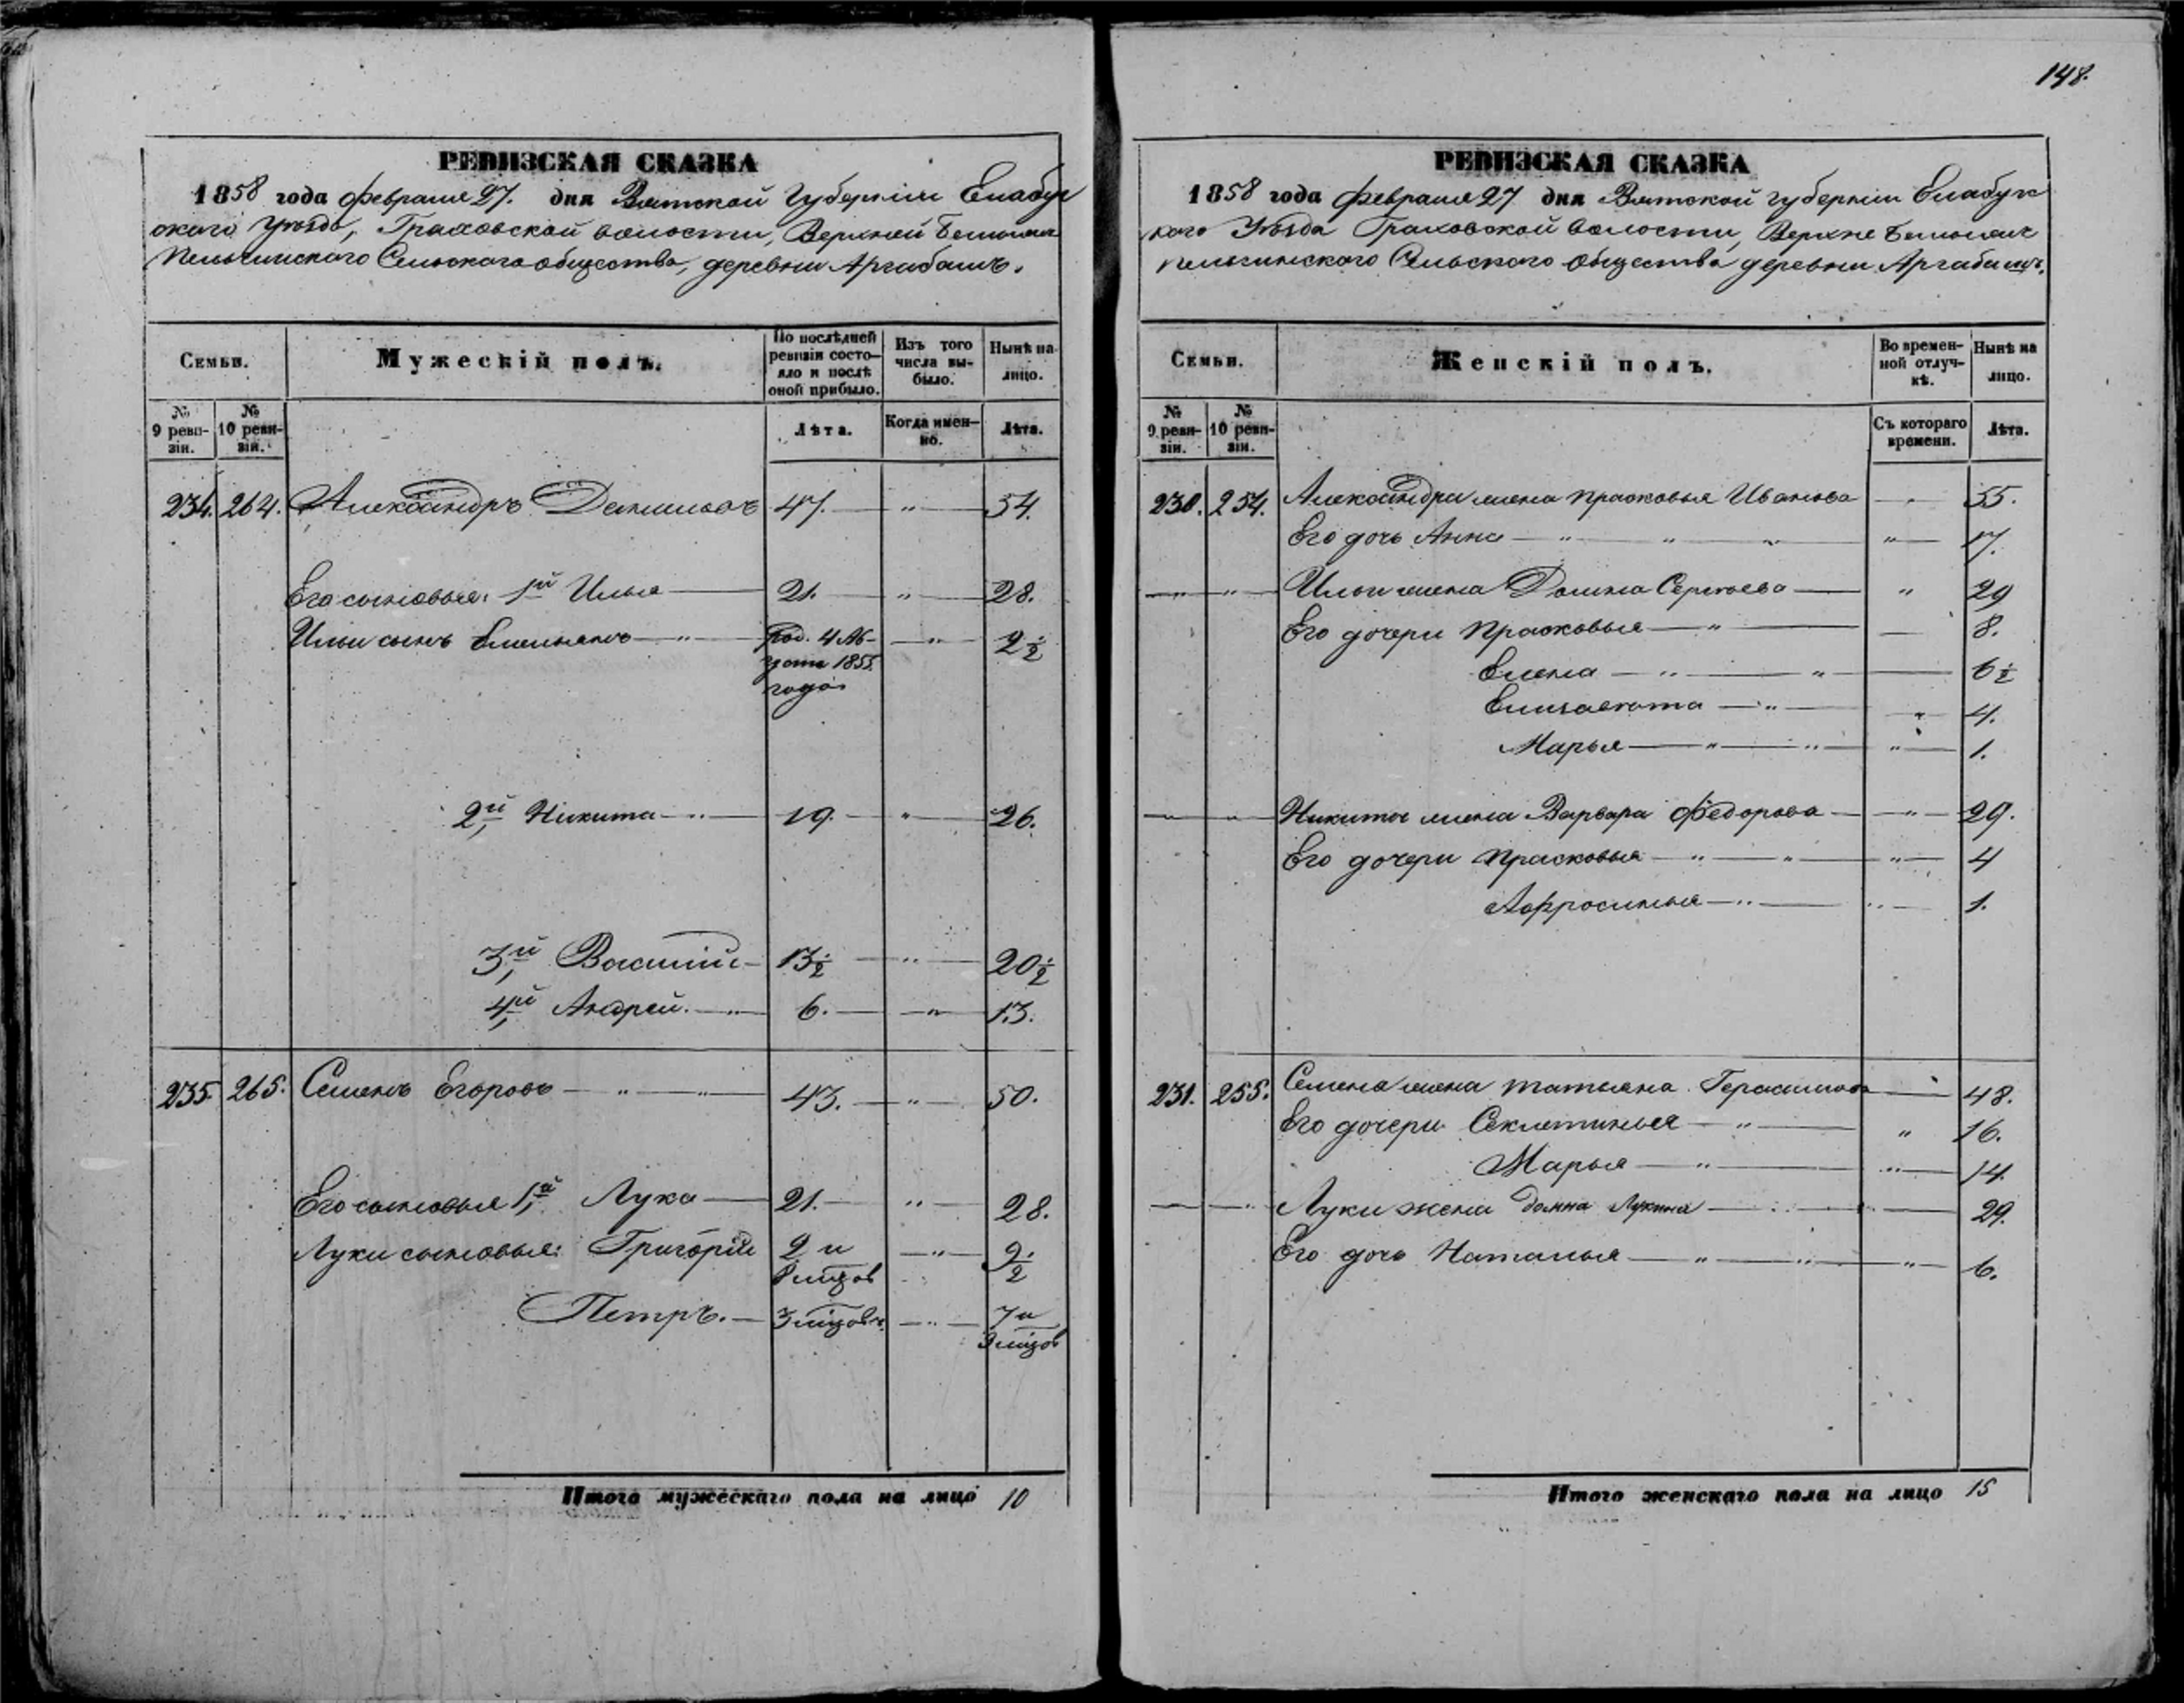 148.
РЕВИЗСКАЯ СКАЗКА
1858 года февраля 27. дня Вятской Губерніи Елабуг
скаго Уѣзда, Граховской волости, Верхней
Пельгинскаго Сельскаго общества, деревни Аргабашъ.
Семьи. Мужескій полъ. По послѣдней ревизіи состояло и послѣ оной прибыло. Изъ того числа выбыло. Нынѣ на лицо.
№ 9 ревизіи. № 10 ревизіи. Лѣта. Когда именно. Лѣта.
234. 264. Александръ Даниловъ 47. — " — 54.
Его сыновья: 1й Илья — 21. — " — 28.
Ильи сынъ Емельянъ — " — род. 4 Ав- — " — 2½
густа 1855
года
2й Никита — " — 19. — " — 26.
3й Василій — 13½ — " — 20½
4й Андрей. — " — 6. — " — 13.
235. 265. Семенъ Егоровъ — " — " — 43. — " — 50.
Его сыновья 1й Лука — 21. — " — 28.
Луки сыновья: Григорій 2 и — " — 9½
мцов
Петръ. — 3 мцовъ. — " — 7 и
мцов
Итого мужескаго пола на лицо 10
РЕВИЗСКАЯ СКАЗКА
1858 года февраля 27 дня Вятской губерніи Елабугс
каго Уѣзда Граховской волости, Верхне
пельгинскаго Сельскаго общества деревни Аргабашъ.
Семьи. Женскій полъ. Во временной отлучкѣ. Нынѣ на лицо.
№ 9 ревизіи. № 10 ревизіи. Съ котораго времени. Лѣта.
230. 254. Александра жена Прасковья Иванова — " — 55.
Его дочь Анна — " — " — " — " — 17.
— " — " — Ильи жена Домна Сергѣева — " 29
Его дочери Прасковья — " — — 8.
Елена — " — " — — 6½
Елизавета — " — " — 4.
Марья — " — " — " — 1.
— " — " — Никиты жена Варвара Федорова — " — 29.
Его дочери Прасковья — " — " — " — 4
Афросинья — " — " — 1.
231. 255. Семена жена Татьяна Герасимова — 48.
Его дочери Секлетинья — " — " 16.
Марья — " — " — 14.
— " — Луки жена Домна Лукина — " — 29.
Его дочь Наталья — " — " — " — 6.
Итого женскаго пола на лицо 15